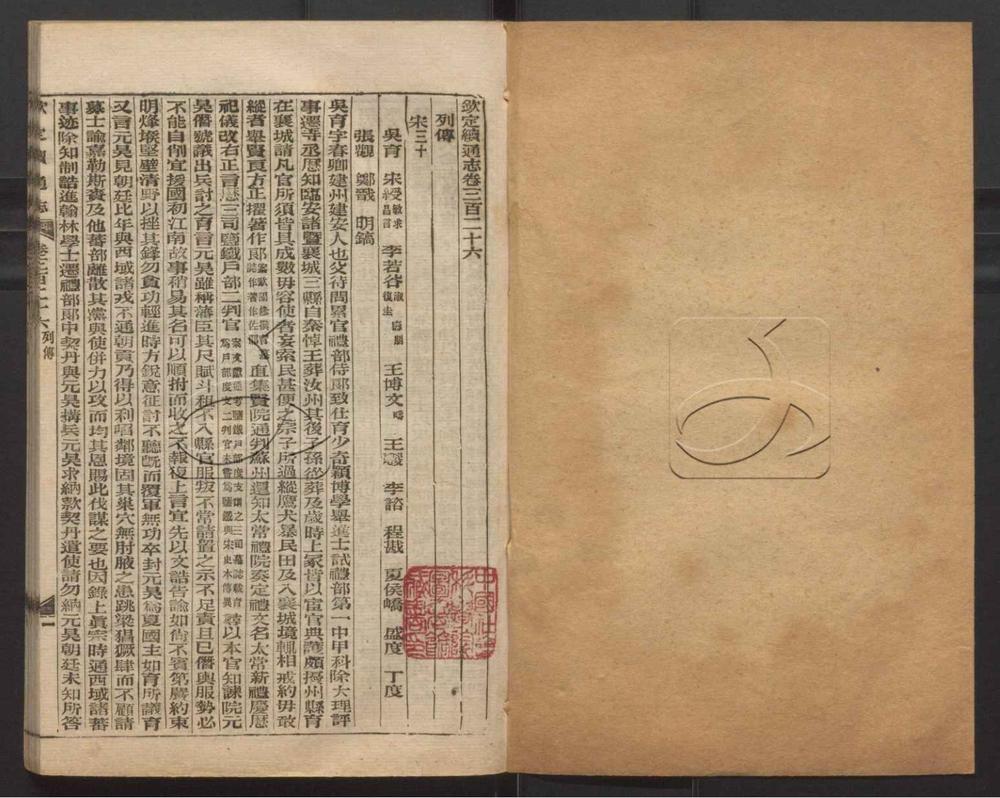 欽定續通志卷三百二十六
列傳
宋三十
吳育 宋綬敏求 從昌言 李若谷淑 復圭 王博文疇 王鬷 李諮 程戡 夏侯嶠 盛度 丁度
張觀 鄭戩 明鎬
吳育字春卿建州建安人也父待問累官禮部侍郎致仕育少奇穎博學舉進士試禮部第一中甲科除大理評
事遷寺丞歷知臨安諸暨襄城三縣自秦悼王葬汝州其後子孫從葬及歲時上冢皆以宦官典護頗擾州縣育
在襄城請凡官所須皆具成數毋容使者妄索民甚便之宗子所過縱鷹犬暴民田及入襄城境輒相戒約毋敢
縱者舉賢良方正擢著作郎 直集賢院通判蘇州還知太常禮院奏定禮文名太常新禮慶曆
祀儀改右正言歷三司鹽鐵戶部二判官 尋以本官知諫院元
昊僭號議出兵討之育言元昊雖稱藩臣其尺賦斗租不入縣官服叛不常請置之示不足責且已僭輿服勢必
不能自削宜援國初江南故事稍易其名可以順拊而收之不報復上言宜先以文誥告諭如尚不賓第嚴約束
明烽堠堅壁清野以挫其鋒勿貪功輕進時方銳意征討不聽旣而覆軍無功卒封元昊爲夏國主如育所議育
又言元昊見朝廷比年與西域諸戎不通朝貢乃得以利啗鄰境固其巢穴無肘腋之患跳梁猖獗肆而不顧請
募士諭嘉勒斯賚及他蕃部離散其黨與使併力以攻而均其恩賜此伐謀之要也因錄上眞宗時通西域諸蕃
事迹除知制誥進翰林學士遷禮部郎中契丹與元昊構兵元昊求納款契丹遣使請勿納元昊朝廷未知所答
欽定續通志 卷三百二十六 列傳 一